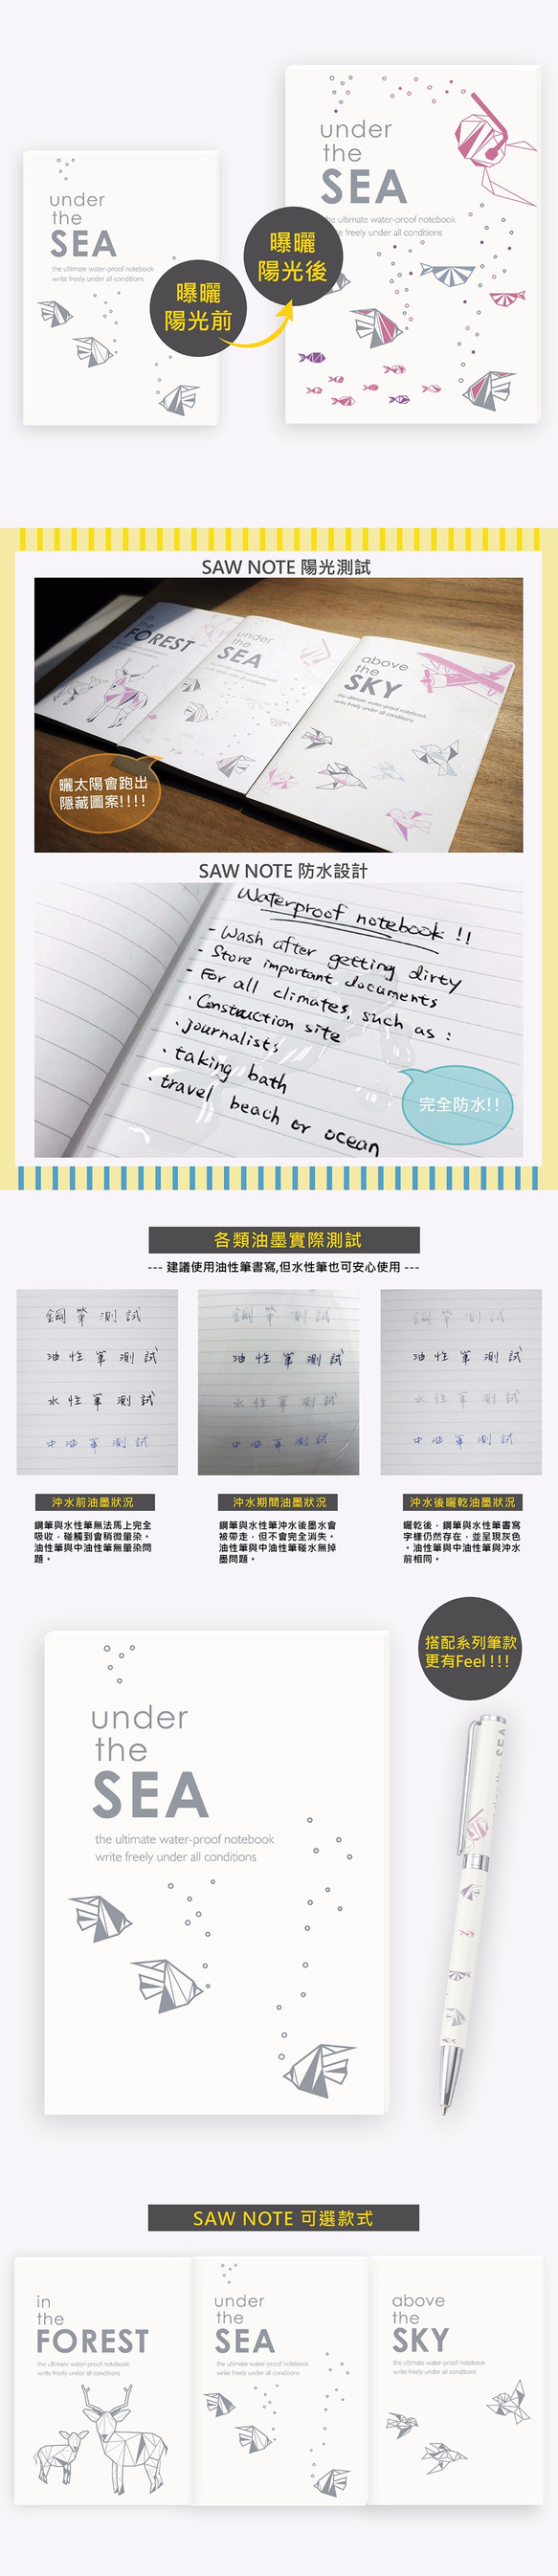 under
the
SEA
the ultimate water-proof notebook
write freely under all conditions
曝曬
陽光前
under
the
SEA
the ultimate water-proof notebook
write freely under all conditions
曝曬
陽光後
SAW NOTE 陽光測試
in
the
FOREST
under
the
SEA
above
the
SKY
the ultimate water-proof notebook
write freely under all conditions
曬太陽會跑出
隱藏圖案!!!!
SAW NOTE 防水設計
Waterproof notebook !!
- Wash after getting dirty
- Store important documents
- For all climates, such as :
· Construction site
· journalists
· taking bath
· travel beach or ocean
完全防水!!
各類油墨實際測試
--- 建議使用油性筆書寫,但水性筆也可安心使用 ---
鋼筆測試
油性筆測試
水性筆測試
中油筆測試
鋼筆測試
油性筆測試
水性筆測試
中油筆測試
鋼筆測試
油性筆測試
水性筆測試
中油筆測試
沖水前油墨狀況
鋼筆與水性筆無法馬上完全
吸收，碰觸到會稍微暈染。
油性筆與中油性筆無暈染問
題。
沖水期間油墨狀況
鋼筆與水性筆沖水後墨水會
被帶走，但不會完全消失。
油性筆與中油性筆碰水無掉
墨問題。
沖水後曬乾油墨狀況
曬乾後，鋼筆與水性筆書寫
字樣仍然存在，並呈現灰色
。油性筆與中油性筆與沖水
前相同。
搭配系列筆款
更有Feel !!!
under
the
SEA
the ultimate water-proof notebook
write freely under all conditions
SAW NOTE 可選款式
in
the
FOREST
the ultimate water-proof notebook
write freely under all conditions
under
the
SEA
the ultimate water-proof notebook
write freely under all conditions
above
the
SKY
the ultimate water-proof notebook
write freely under all conditions